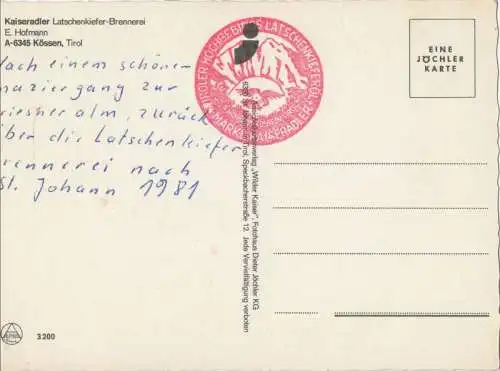 Kaiseradler Latschenkiefer-Brennerei
E. Hofmann
A-6345 Kössen, Tirol
Nach einem schönen
aziergang zur
alm, zurück
über die Latschenkiefer
rennerei nach
St. Johann 1981
3200
TIROLER HOCHGEBIRGS LATSCHENKIEFER
MARKE KAISERADLER
Ansichtskartenverlag „Wilder Kaiser", Fotohaus Dieter Jöchler KG
6380 St. Johann in Tirol, Speckbacherstraße 12. Jede Vervielfältigung verboten
EINE
JÖCHLER
KARTE